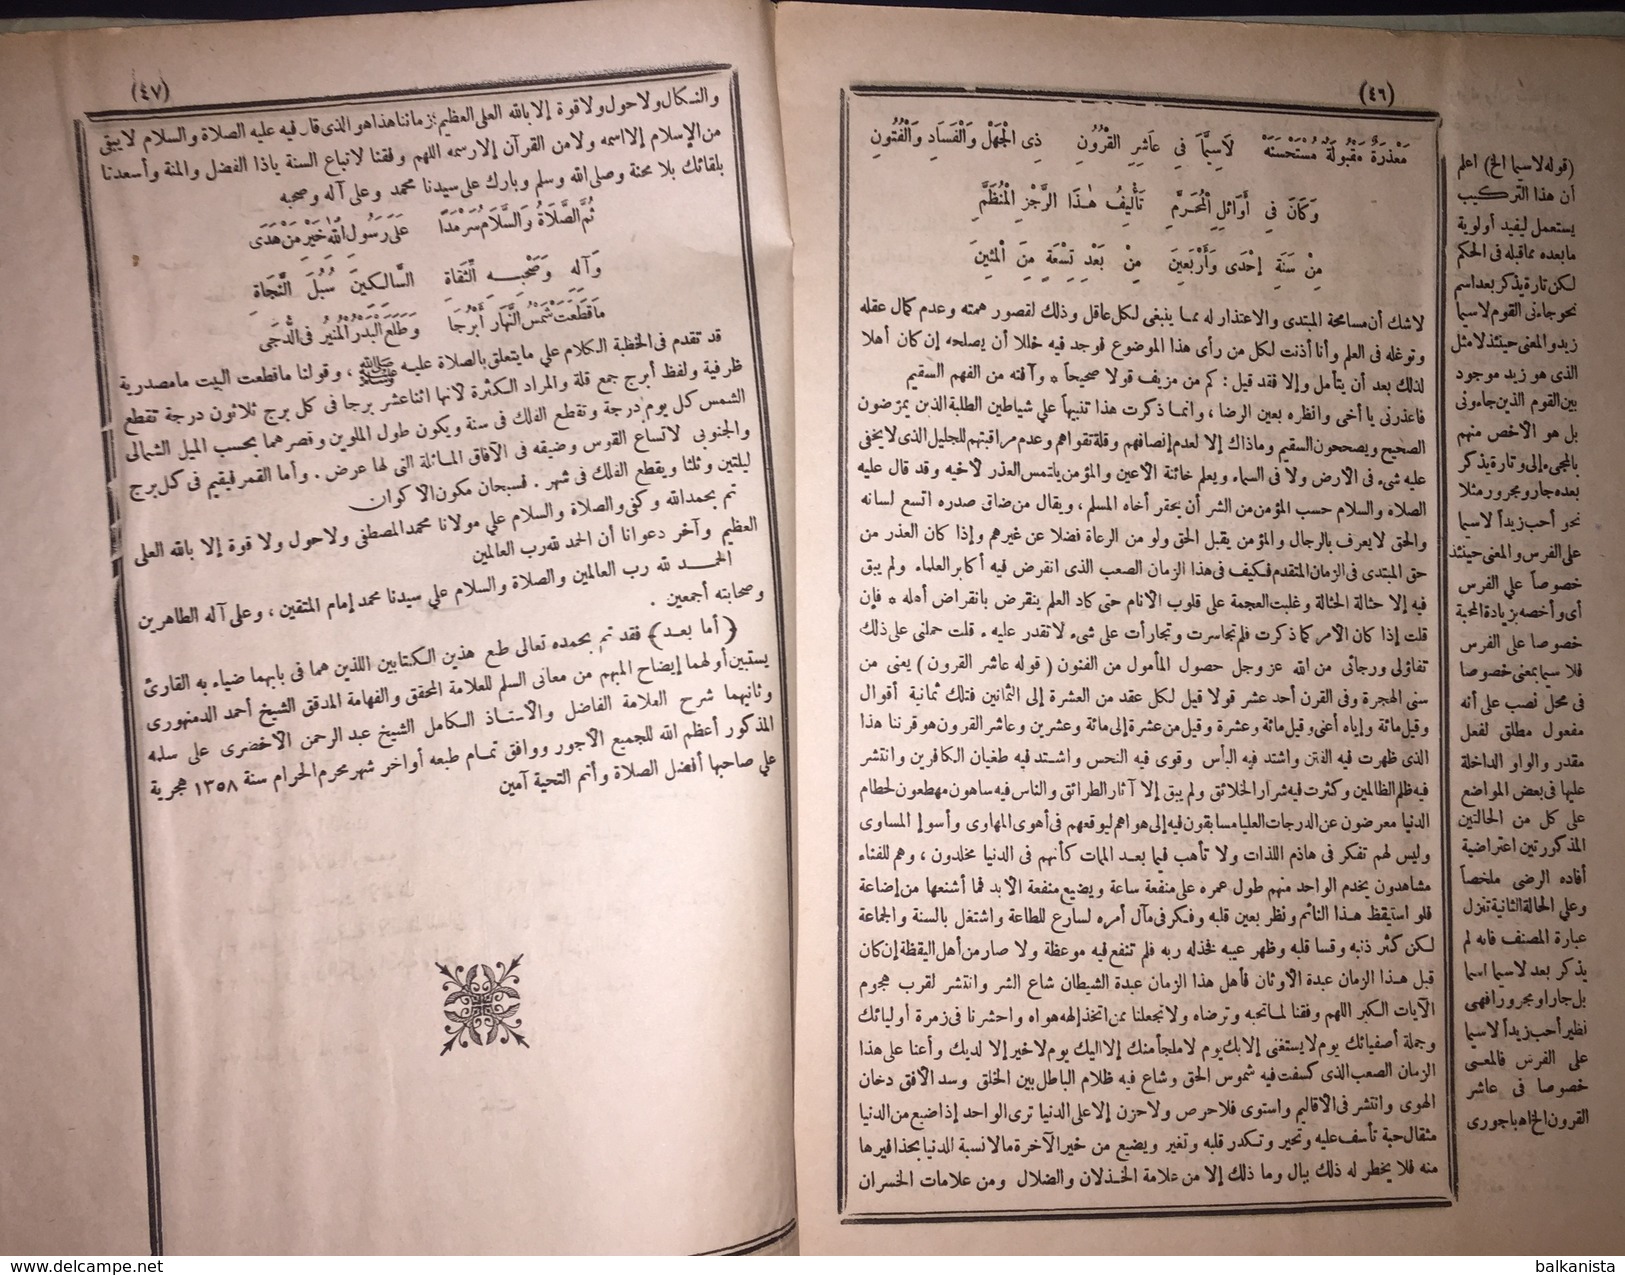 (٤٦)
مَعْذِرَةٌ مَقْبُولَةٌ مُسْتَحْسَنَهْ لَاسِيَّمَا فِي عَاشِرِ الْقُرُونِ ذِي الْجَهْلِ وَالْفَسَادِ وَالْفُتُونِ
وَكَانَ فِي أَوَائِلِ الْمُحَرَّمِ تَأْلِيفُ هٰذَا الرَّجْزِ الْمُنَظَّمِ
مِنْ سَنَةِ إِحْدَى وَأَرْبَعِينَ مِنْ بَعْدِ تِسْعَةٍ مِنَ الْمِئِينَ
لاشك أن مسامحة المبتدى والاعتذار له مما ينبغى لكل عاقل وذلك لقصور همته وعدم كمال عقله
وتوغله فى العلم وأنا أذنت لكل من رأى هذا الموضوع فوجد فيه خللا أن يصلحه إن كان أهلا
لذلك بعد أن يتأمل وإلا فقد قيل : كم من مزيف قولا صحيحاً * وآفته من الفهم السقيم
فاعذرنى يا أخى وانظره بعين الرضا ، وانما ذكرت هذا تنبيهاً على شياطين الطلبة الذين يمرّضون
الصحيح ويصححون السقيم وماذاك إلا لعدم إنصافهم وقلة تقواهم وعدم مراقبتهم للجليل الذى لا يخفى
عليه شىء فى الأرض ولا فى السماء ويعلم خائنة الأعين والمؤمن يلتمس العذر لأخيه وقد قال عليه
الصلاة والسلام حسب المؤمن من الشر أن يحقر أخاه المسلم ، ويقال من ضاق صدره اتسع لسانه
والحق لا يعرف بالرجال والمؤمن يقبل الحق ولو من الرعاة فضلا عن غيرهم وإذا كان العذر من
حق المبتدى فى الزمان المتقدم فكيف فى هذا الزمان الصعب الذى انقرض فيه أكابر العلماء ولم يبق
فيه إلا حثالة الحثالة وغلبت العجمة على قلوب الأنام حتى كاد العلم ينقرض بانقراض أهله * فإن
قلت إذا كان الأمر كما ذكرت فلم تجاسرت وتجارأت على شىء لا تقدر عليه . قلت حملنى على ذلك
تفاؤلى ورجائى من الله عز وجل حصول المأمول من الفنون ( قوله عاشر القرون ) يعنى من
سنى الهجرة وفى القرن أحد عشر قولا قيل لكل عقد من العشرة إلى الثمانين فتلك ثمانية أقوال
وقيل مائة وإياه أعنى وقيل مائة وعشرة وقيل من عشرة إلى مائة وعشرين وعاشر القرون هو قرننا هذا
الذى ظهرت فيه الفتن واشتد فيه البأس وقوى فيه النحس واشتد فيه طغيان الكافرين وانتشر
فيه ظلم الظالمين وكثرت فيه شرار الخلائق ولم يبق إلا آثار الطرائق والناس فيه ساهون مهطعون لحطام
الدنيا معرضون عن الدرجات العليا مسابقون فيه إلى هواهم ليوقعهم فى أهوى المهاوى وأسوإ المساوى
وليس لهم تفكر فى هاذم اللذات ولا تأهب فيما بعد الممات كأنهم فى الدنيا مخلدون ، وهم للفناء
مشاهدون يخدم الواحد منهم طول عمره على منفعة ساعة ويضيع منفعة الأبد فما أشنعها من إضاعة
فلو استيقظ هذا النائم ونظر بعين قلبه وفكر فى مآل أمره لسارع للطاعة واشتغل بالسنة والجماعة
لكن كثر ذنبه وقسا قلبه وظهر عيبه فخذله ربه فلم تنفع فيه موعظة ولا صار من أهل اليقظة إن كان
قبل هذا الزمان عبدة الأوثان فأهل هذا الزمان عبدة الشيطان شاع الشر وانتشر لقرب هجوم
الآيات الكبر اللهم وفقنا لما تحبه وترضاه ولا تجعلنا ممن اتخذ إلهه هواه واحشرنا فى زمرة أوليائك
وجملة أصفيائك يوم لا يستغنى إلا بك يوم لا ملجأ منك إلا اليك يوم لا خير إلا لديك وأعنا على هذا
الزمان الصعب الذى كسفت فيه شموس الحق وشاع فيه ظلام الباطل بين الخلق وسد الأفق دخان
الهوى وانتشر فى الأقاليم واستوى فلا حرص ولا حزن إلا على الدنيا ترى الواحد إذا ضيع من الدنيا
مثقال حبة تأسف عليه وتحير وتكدر قلبه وتغير ويضيع من خير الآخرة مالا نسبة للدنيا بحذافيرها
منه فلا يخطر له ذلك ببال وما ذلك إلا من علامة الخذلان والضلال ومن علامات الخسران
(قوله لاسيما الخ) اعلم
أن هذا التركيب
يستعمل ليفيد أولوية
ما بعده مما قبله فى الحكم
لكن تارة يذكر بعد اسم
نحو جاءنى القوم لاسيما
زيد والمعنى حينئذ لا مثل
الذى هو زيد موجود
بين القوم الذين جاءونى
بل هو الأخص منهم
بالمجىء إلى وتارة يذكر
بعده جار ومجرور مثلا
نحو أحب زيداً لاسيما
على الفرس والمعنى حينئذ
خصوصاً على الفرس
أى وأخصه بزيادة المحبة
خصوصا على الفرس
فلا سيما بمعنى خصوصا
فى محل نصب على أنه
مفعول مطلق لفعل
مقدر والواو الداخلة
عليها فى بعض المواضع
على كل من الحالتين
المذكورتين اعتراضية
أفاده الرضى ملخصاً
وعلى الحالة الثانية تنزل
عبارة المصنف فانه لم
يذكر بعد لاسيما اسما
بل جارا ومجرورا فهى
نظير أحب زيداً لاسيما
على الفرس فالمعنى
خصوصا فى عاشر
القرون الخ اه باجورى
(٤٧)
والنكال ولا حول ولا قوة إلا بالله العلى العظيم زماننا هذا هو الذى قال فيه عليه الصلاة والسلام لا يبقى
من الإسلام إلا اسمه ولا من القرآن إلا رسمه اللهم وفقنا لاتباع السنة ياذا الفضل والمنة وأسعدنا
بلقائك بلا محنة وصلى الله وسلم وبارك على سيدنا محمد وعلى آله وصحبه
ثُمَّ الصَّلَاةُ وَالسَّلَامُ سَرْمَدًا عَلَى رَسُولِ اللهِ خَيْرِ مَنْ هَدَى
وَآلِهِ وَصَحْبِهِ الثِّقَاةِ السَّالِكِينَ سُبُلَ النَّجَاةِ
مَا قَطَعَتْ شَمْسُ النَّهَارِ أَبْرُجَا وَطَلَعَ الْبَدْرُ الْمُنِيرُ فِى الدُّجَى
قد تقدم فى الخطبة الكلام على ما يتعلق بالصلاة عليه ﷺ ، وقولنا ما قطعت البيت ما مصدرية
ظرفية ولفظ أبرج جمع قلة والمراد الكثرة لأنها اثنا عشر برجا فى كل برج ثلاثون درجة تقطع
الشمس كل يوم درجة وتقطع الفلك فى سنة ويكون طول الملوين وقصرهما بحسب الميل الشمالى
والجنوبى لاتساع القوس وضيقه فى الآفاق المائلة التى لها عرض . وأما القمر فيقيم فى كل برج
ليلتين وثلثا ويقطع الفلك فى شهر . فسبحان مكون الأكوان
تم بحمد الله وكفى والصلاة والسلام على مولانا محمد المصطفى ولا حول ولا قوة إلا بالله العلى
العظيم وآخر دعوانا أن الحمد لله رب العالمين
الحمد لله رب العالمين والصلاة والسلام على سيدنا محمد إمام المتقين ، وعلى آله الطاهرين
وصحابته أجمعين .
(أما بعد) فقد تم بحمده تعالى طبع هذين الكتابين اللذين هما فى بابهما ضياء به القارئ
يستبين أولهما إيضاح المبهم من معانى السلم للعلامة المحقق والفهامة المدقق الشيخ أحمد الدمنهورى
وثانيهما شرح العلامة الفاضل والأستاذ الكامل الشيخ عبد الرحمن الأخضرى على سلمه
المذكور أعظم الله للجميع الأجور ووافق تمام طبعه أواخر شهر محرم الحرام سنة ١٣٥٨ هجرية
على صاحبها أفضل الصلاة وأتم التحية آمين
delcampe.net
balkanista